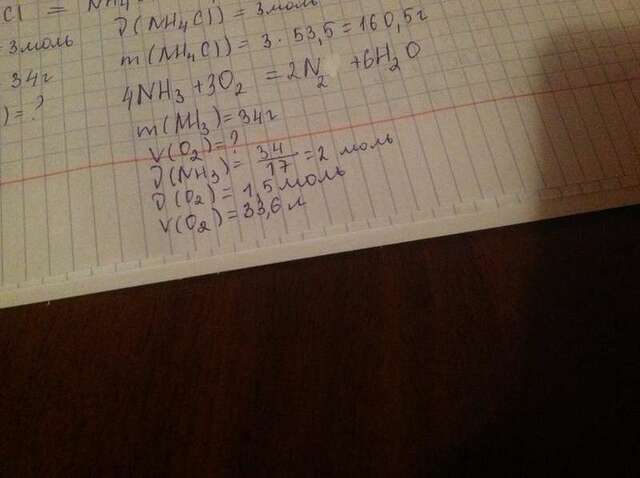 Cl = NH₄
ν(NH₄Cl) = 3моль
3моль
m(NH₄Cl) = 3 · 53,5 = 160,5г
34г
4NH₃ + 3O₂ = 2N₂ + 6H₂O
) = ?
m(NH₃) = 34г
V(O₂) = ?
ν(NH₃) = 34/17 = 2 моль
ν(O₂) = 1,5 моль
V(O₂) = 33,6 л